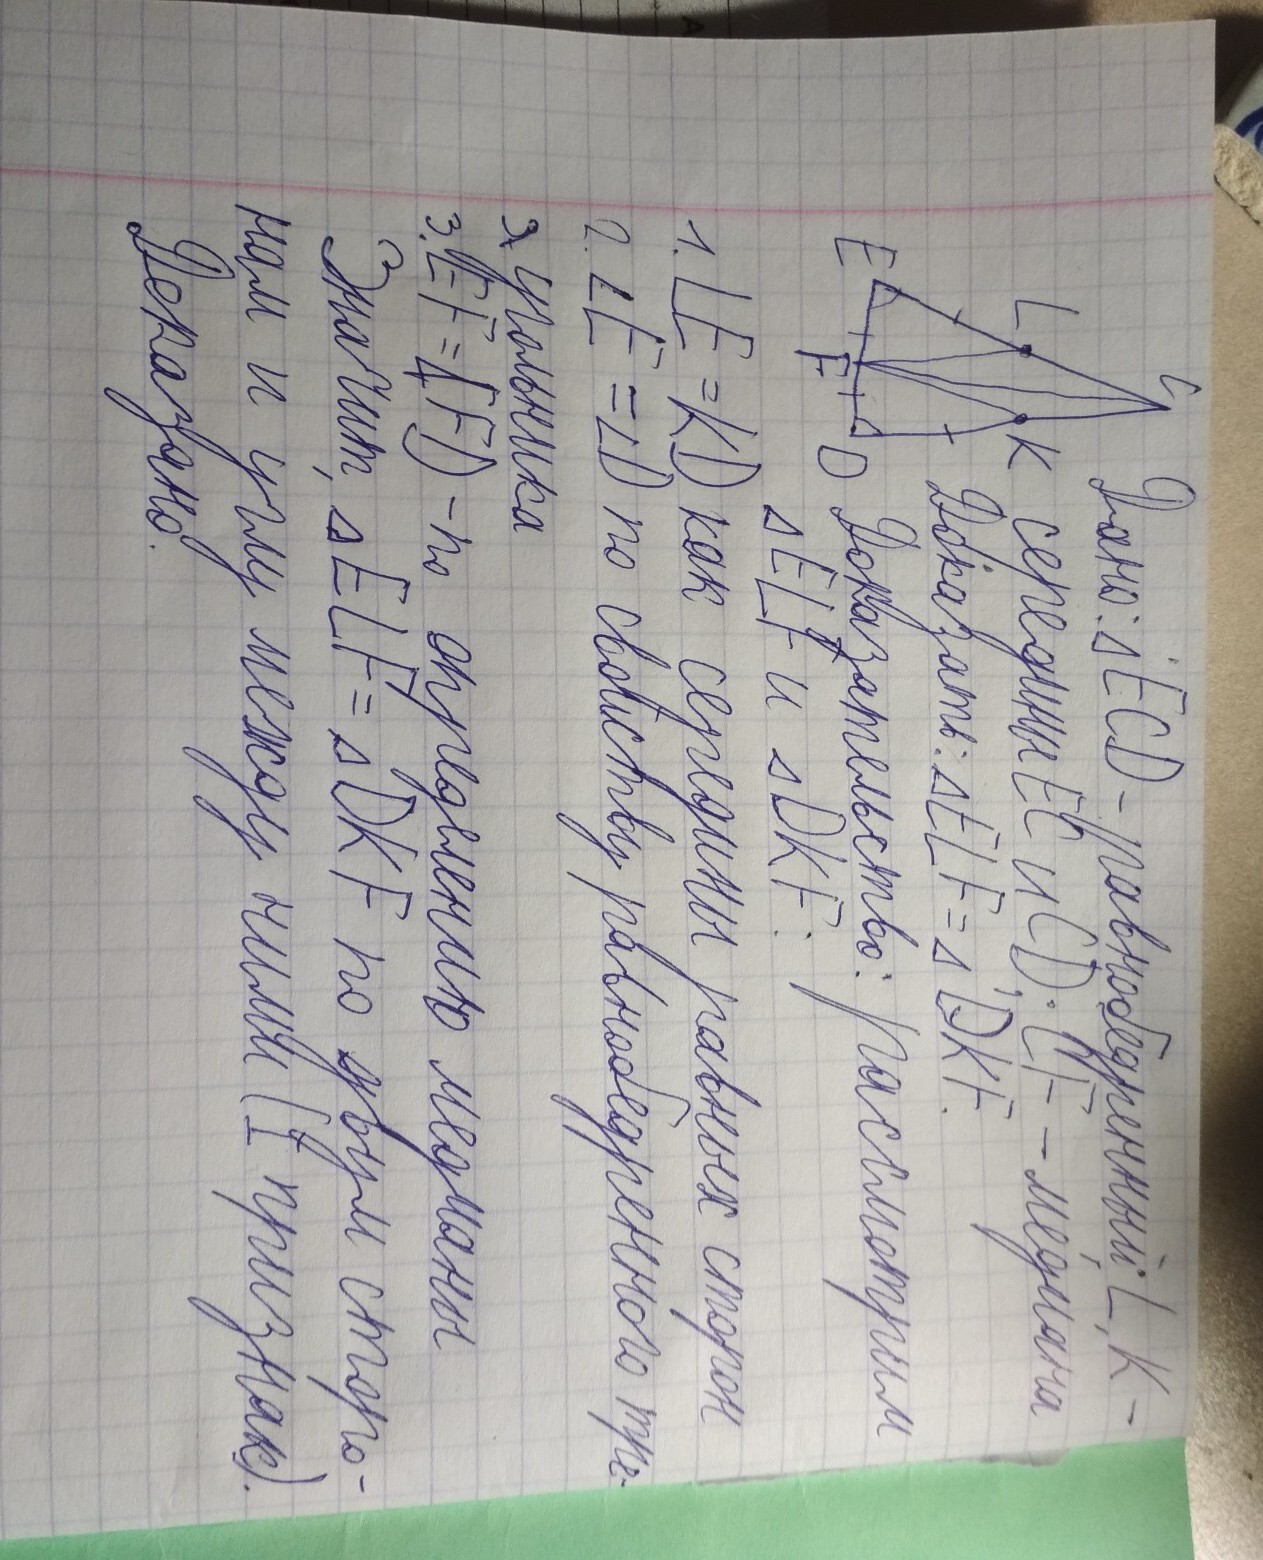 C
L
K
E
F
D
Дано: ΔECD - равнобедренный; L, K -
середины EC и CD; CF - медиана
Доказать: ΔELF = ΔDKF.
Доказательство: Рассмотрим
ΔELF и ΔDKF:
1. LE = KD как середины равных сторон
2. ∠E = ∠D по свойству равнобедренного тре-
угольника
3. EF = FD - по определению медианы
Значит, ΔELF = ΔDKF по двум сторо-
нам и углу между ними (I признак).
Доказано.